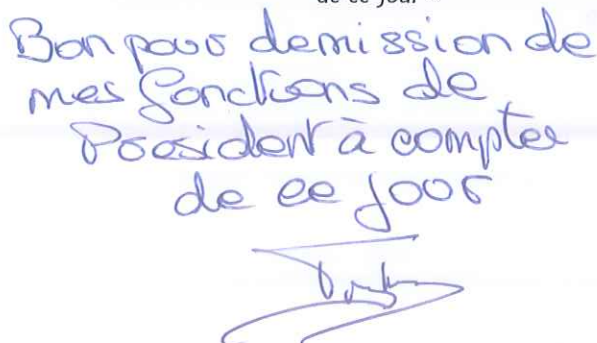 de ce jour
Bon pour demission de
mes fonctions de
President à compter
de ce jour